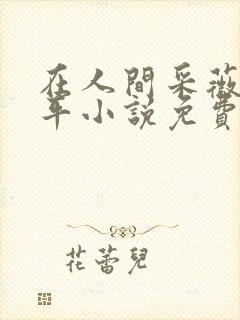 在人間采薇
年小說免費
花蕾兒